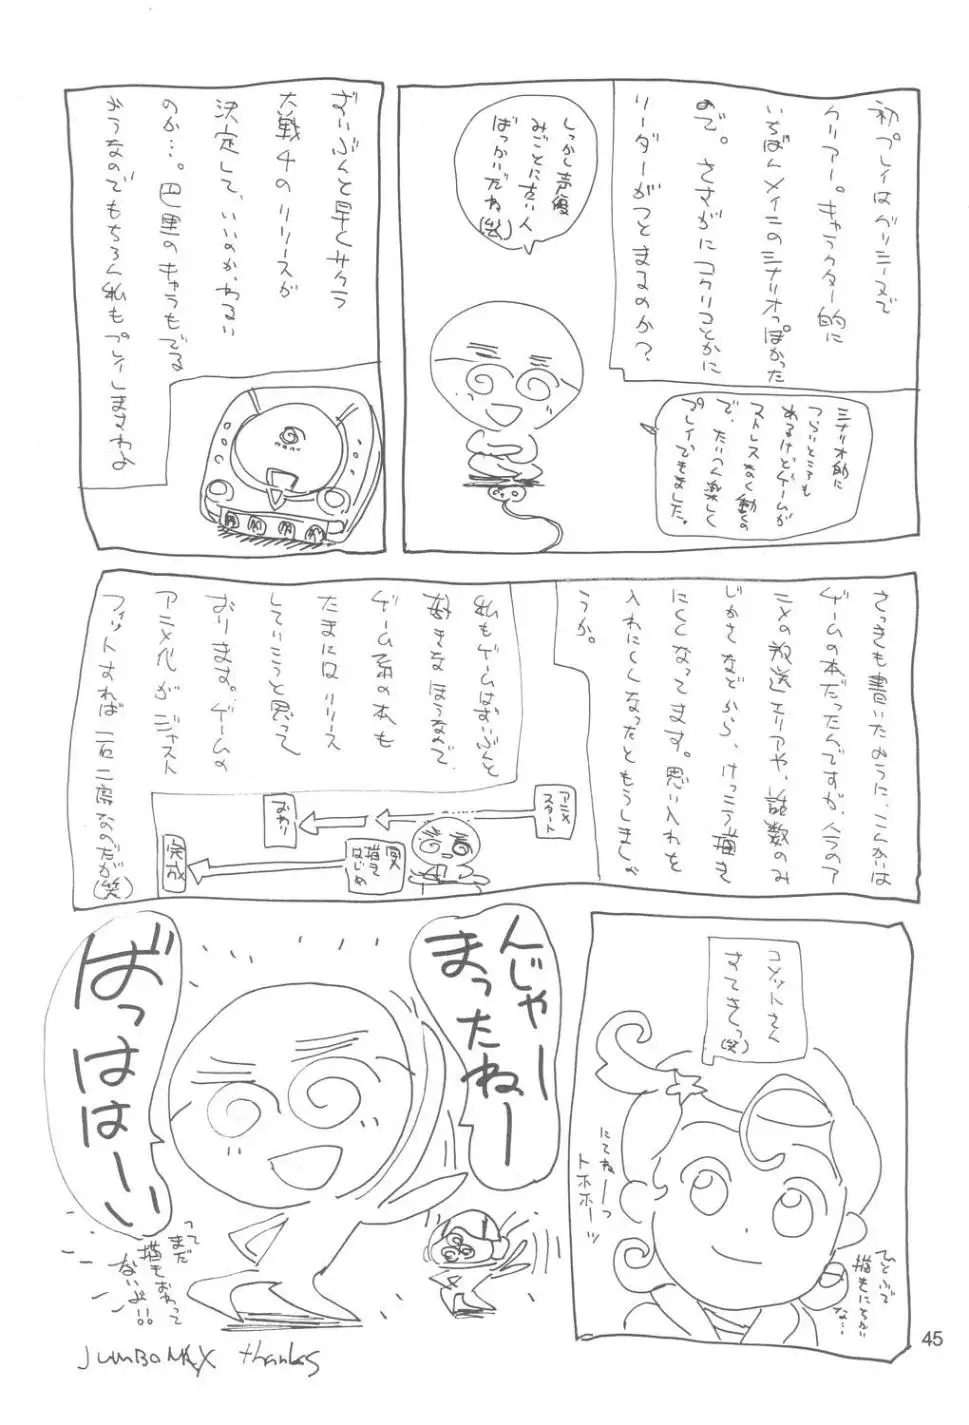 初プレイはグリシーヌで
クリアー。キャラクター的に
いちばんメインのシナリオっぽかった
ので。さすがにコクリコとかに
リーダーがつとまるのか?
しっかし声優
みごとに古い人
ばっかいだね
(笑)
シナリオ的に
つらいところも
あるけどゲームが
ストレスなく動くの
で、たいへん楽しく
プレイできました。
ずいぶんと早くサクラ
大戦4のリリースが
決定して、いいのか、わるい
のか…。巴里のキャラもでる
ようなのでもちろん私もプレイしますわよ
さっきも書いたように、こんかいは
ゲームの本だったんですが、今のア
ニメの放送エリアや、話数のみ
じかさなどから、けっこう描き
にくくなってます。思い入れを
入れにくくなったともうしましょ
うか。
私もゲームはずいぶんと
好きなほうなんで、
ゲーム系の本も
たまにはリリース
していこうと思って
おります。ゲームの
アニメ化がジャスト
フィットすれば一石二鳥なのだが(笑)
アニメ
スタート
おわり
描き
はじめ
完成
コメットさん
すてきっ
(笑)
にてねーっ
トホホーッ
ひとふで
描きにちかい
な…
んじゃー
まったねー
ばっはは—い
って
まだ
描きおわって
ないよ!!
JUMBOMAX thanks
45